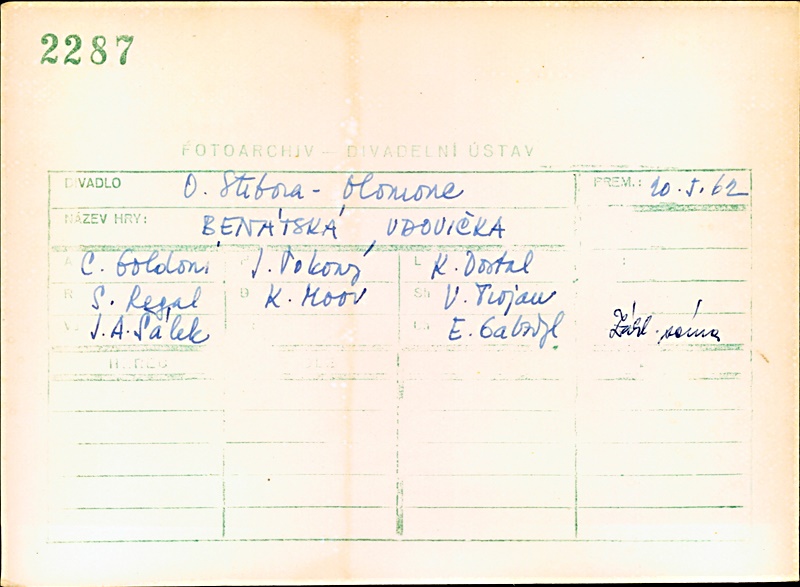 2287
FOTOARCHIV – DIVADELNÍ ÚSTAV
DIVADLO O. Stibora - Olomouc PREM.: 20.5.62
NÁZEV HRY: BENÁTSKÁ VDOVIČKA
A C. Goldoni P J. Pokorný L K. Dostal
R S. Regal D K. Moor Sh V. Trojan
J. A. Šálek E. Gabzdyl
HEREC